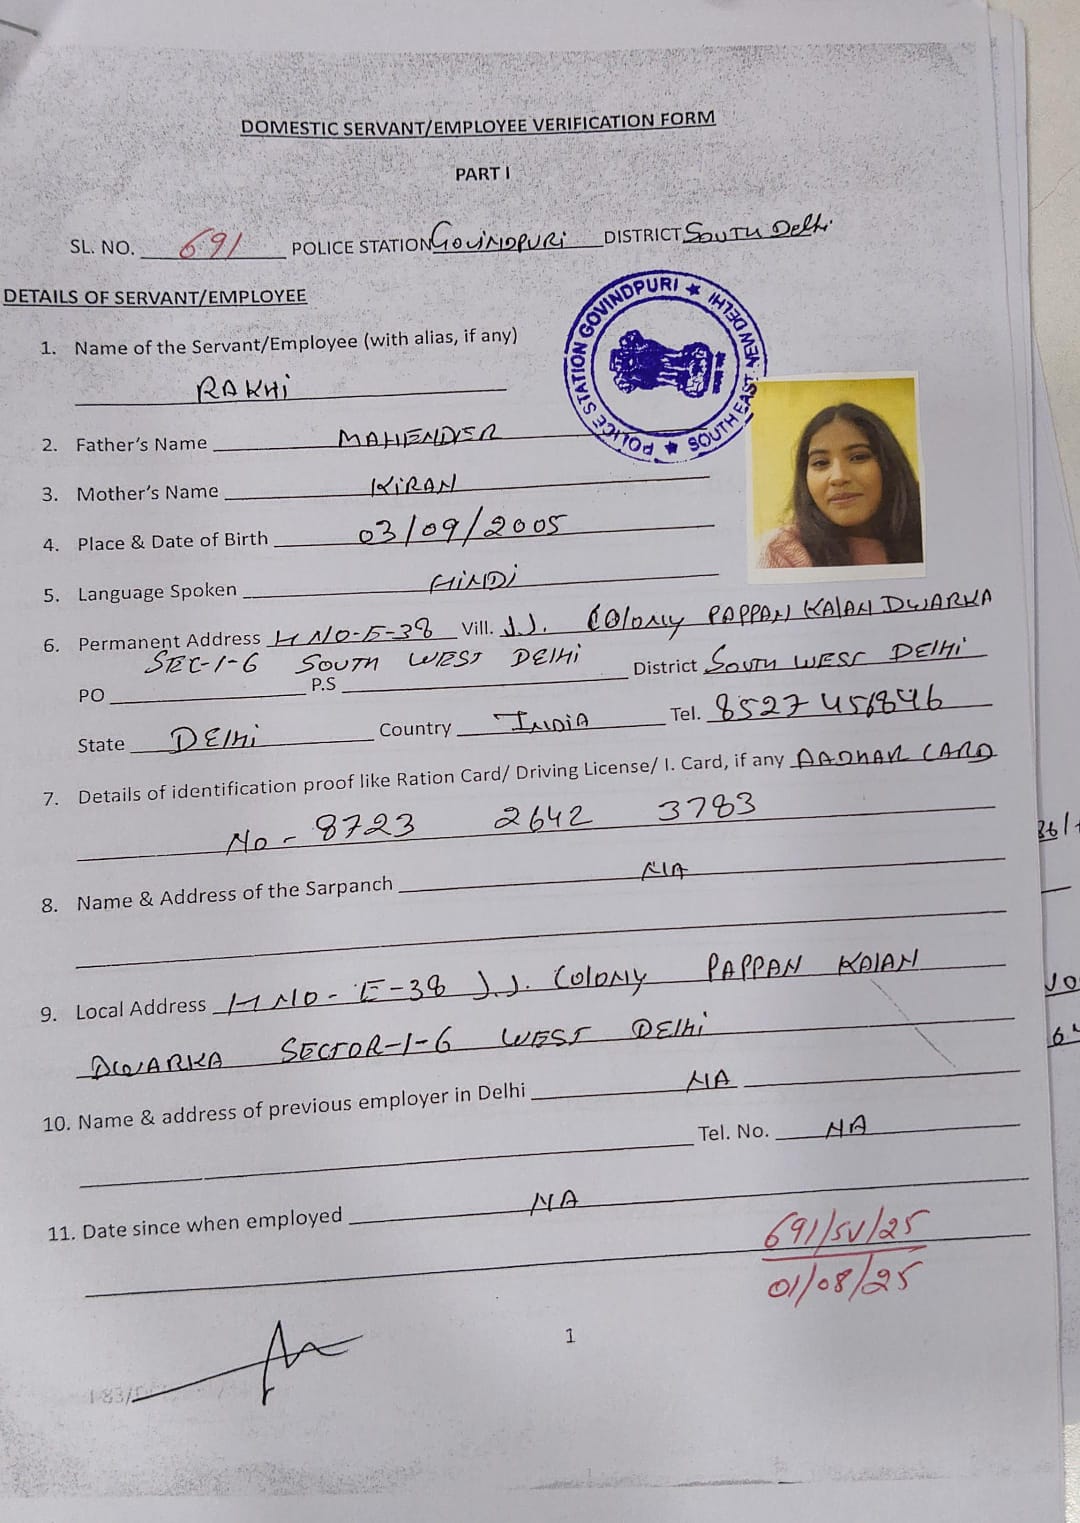 DOMESTIC SERVANT/EMPLOYEE VERIFICATION FORM
PART I
SL. NO. 691 POLICE STATION GOVINDPURI DISTRICT SOUTH Delhi
DETAILS OF SERVANT/EMPLOYEE
POLICE STATION GOVINDPURI ★ SOUTH EAST NEW DELHI ★
1. Name of the Servant/Employee (with alias, if any)
RAKHi
2. Father's Name MAHENDER
3. Mother's Name KiRAN
4. Place & Date of Birth 03/09/2005
5. Language Spoken HiNDi
6. Permanent Address H NO-E-38 Vill. J.J. COlONY PAPPAN KAlAN DWARKA
SEC-1-6 SOUTH WEST DElHi
PO P.S District SOUTH WEST DElHi
State DElHi Country INDiA Tel. 8527456846
7. Details of identification proof like Ration Card/ Driving License/ I. Card, if any AADHAR CARD
No - 8723 2642 3783
8. Name & Address of the Sarpanch NA
9. Local Address H NO - E-38 J.J. COlONY PAPPAN KAlAN
DWARKA SECTOR-1-6 WEST DElHi
10. Name & address of previous employer in Delhi NA
Tel. No. NA
11. Date since when employed NA
691/SV/25
01/08/25
1